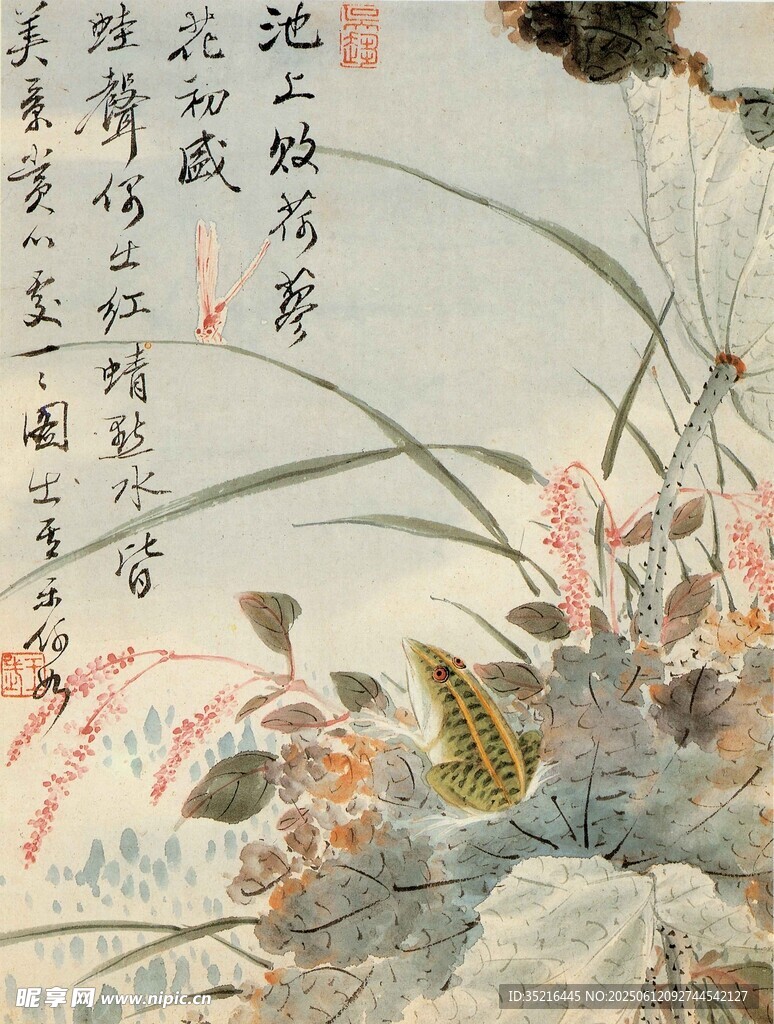 池上败荷蓼
花初盛
蛙聲偶出红
蜻點水皆
美景賞心處
一〻圖出其樂何如
昵享网 www.nipic.cn
ID:35216445 NO:20250612092744542127